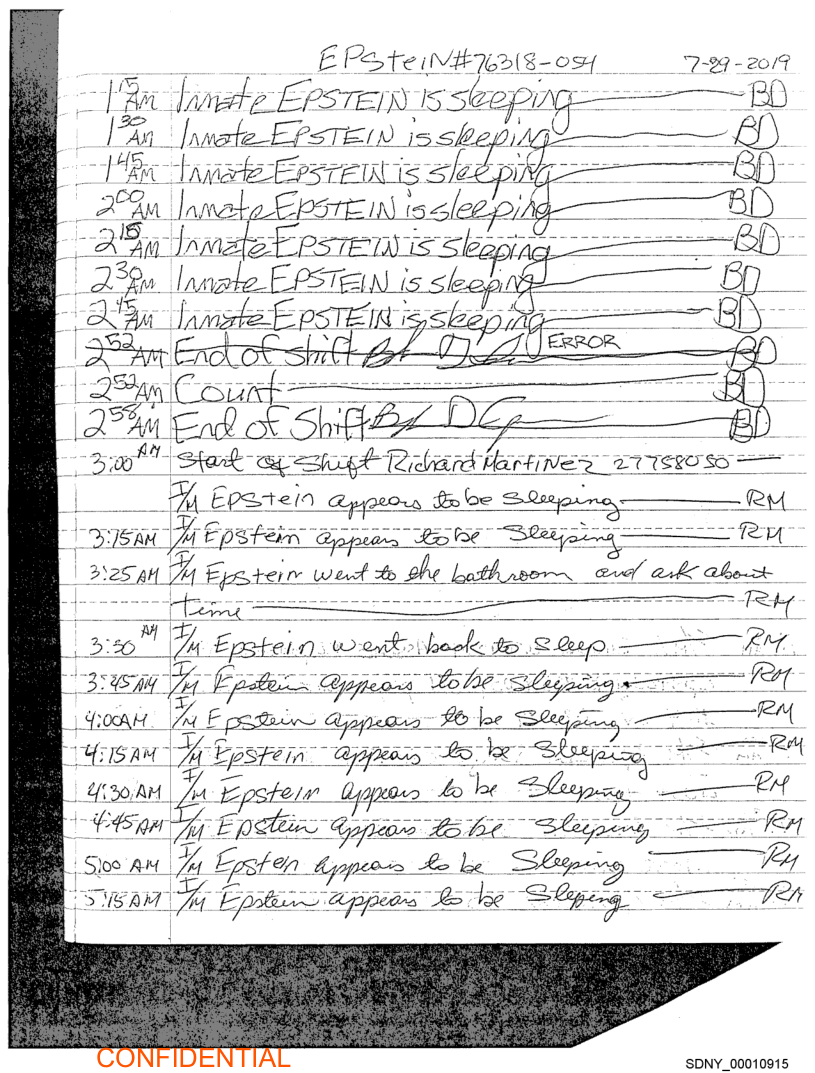 EPSteiN#76318-054 7-29-2019
1:15 AM Inmate EPSTEIN is sleeping BD
1:30 AM Inmate EPSTEIN is sleeping BD
1:45 AM Inmate EPSTEIN is sleeping BD
2:00 AM Inmate EPSTEIN is sleeping BD
2:15 AM Inmate EPSTEIN is sleeping BD
2:30 AM Inmate EPSTEIN is sleeping BD
2:45 AM Inmate EPSTEIN is sleeping BD
2:52 AM End of shift ERROR BD
2:52 AM Count BD
2:58 AM End of Shift BD
3:00 AM Start of Shift Richard Martinez 27758050
I/M EPStein appears to be Sleeping RM
3:15 AM I/M Epstein appears to be Sleeping RM
3:25 AM I/M Epstein went to the bathroom and ask about
time RM
3:30 AM I/M Epstein went back to sleep RM
3:45 AM I/M Epstein appears to be Sleeping. RM
4:00AM I/M Epstein appears to be Sleeping RM
4:15 AM I/M Epstein appears to be Sleeping RM
4:30 AM I/M Epstein appears to be Sleeping RM
4:45 AM I/M Epstein appears to be Sleeping RM
5:00 AM I/M Epsten appears to be Sleeping RM
5:15 AM I/M Epstein appears to be Sleping RM
CONFIDENTIAL
SDNY_00010915